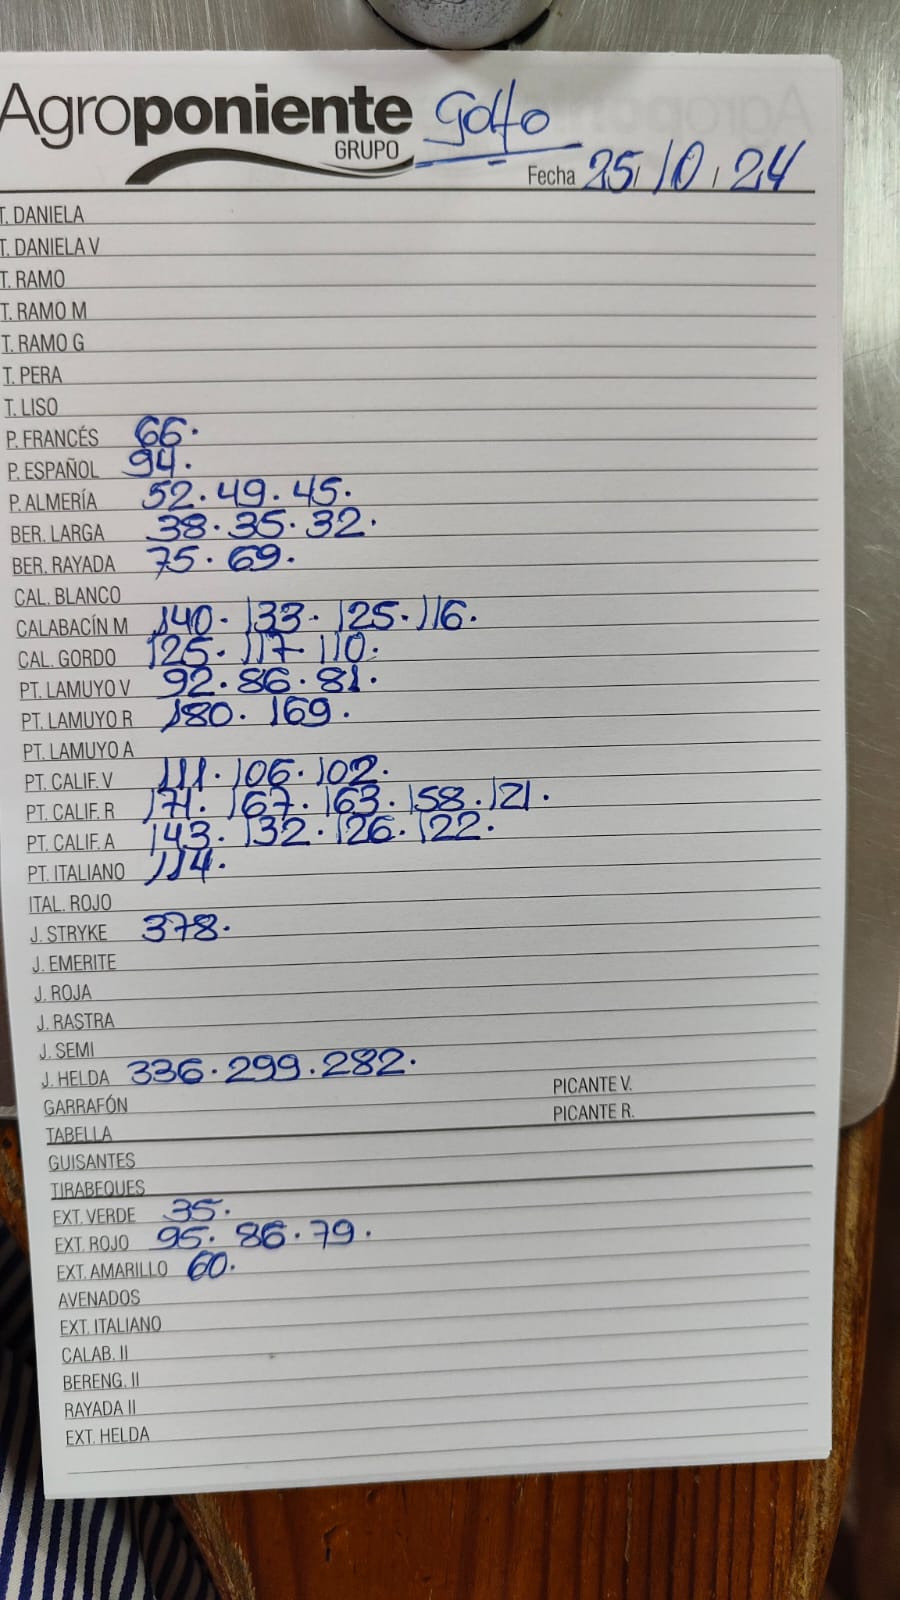 Agroponiente
GRUPO
Golfo
Fecha 25/10/24
T. DANIELA
T. DANIELA V
T. RAMO
T. RAMO M
T. RAMO G
T. PERA
T. LISO
P. FRANCÉS 66.
P. ESPAÑOL 94.
P. ALMERÍA 52. 49. 45.
BER. LARGA 38. 35. 32.
BER. RAYADA 75. 69.
CAL. BLANCO
CALABACÍN M 140. 133. 125. 116.
CAL. GORDO 125. 117. 110.
PT. LAMUYO V 92. 86. 81.
PT. LAMUYO R 180. 169.
PT. LAMUYO A
PT. CALIF. V 111. 106. 102.
PT. CALIF. R 171. 167. 163. 158. 121.
PT. CALIF. A 143. 132. 126. 122.
PT. ITALIANO 114.
ITAL. ROJO
J. STRYKE 378.
J. EMERITE
J. ROJA
J. RASTRA
J. SEMI
J. HELDA 336. 299. 282.
GARRAFÓN PICANTE V.
TABELLA PICANTE R.
GUISANTES
TIRABEQUES
EXT. VERDE 35.
EXT. ROJO 95. 86. 79.
EXT. AMARILLO 60.
AVENADOS
EXT. ITALIANO
CALAB. II
BERENG. II
RAYADA II
EXT. HELDA